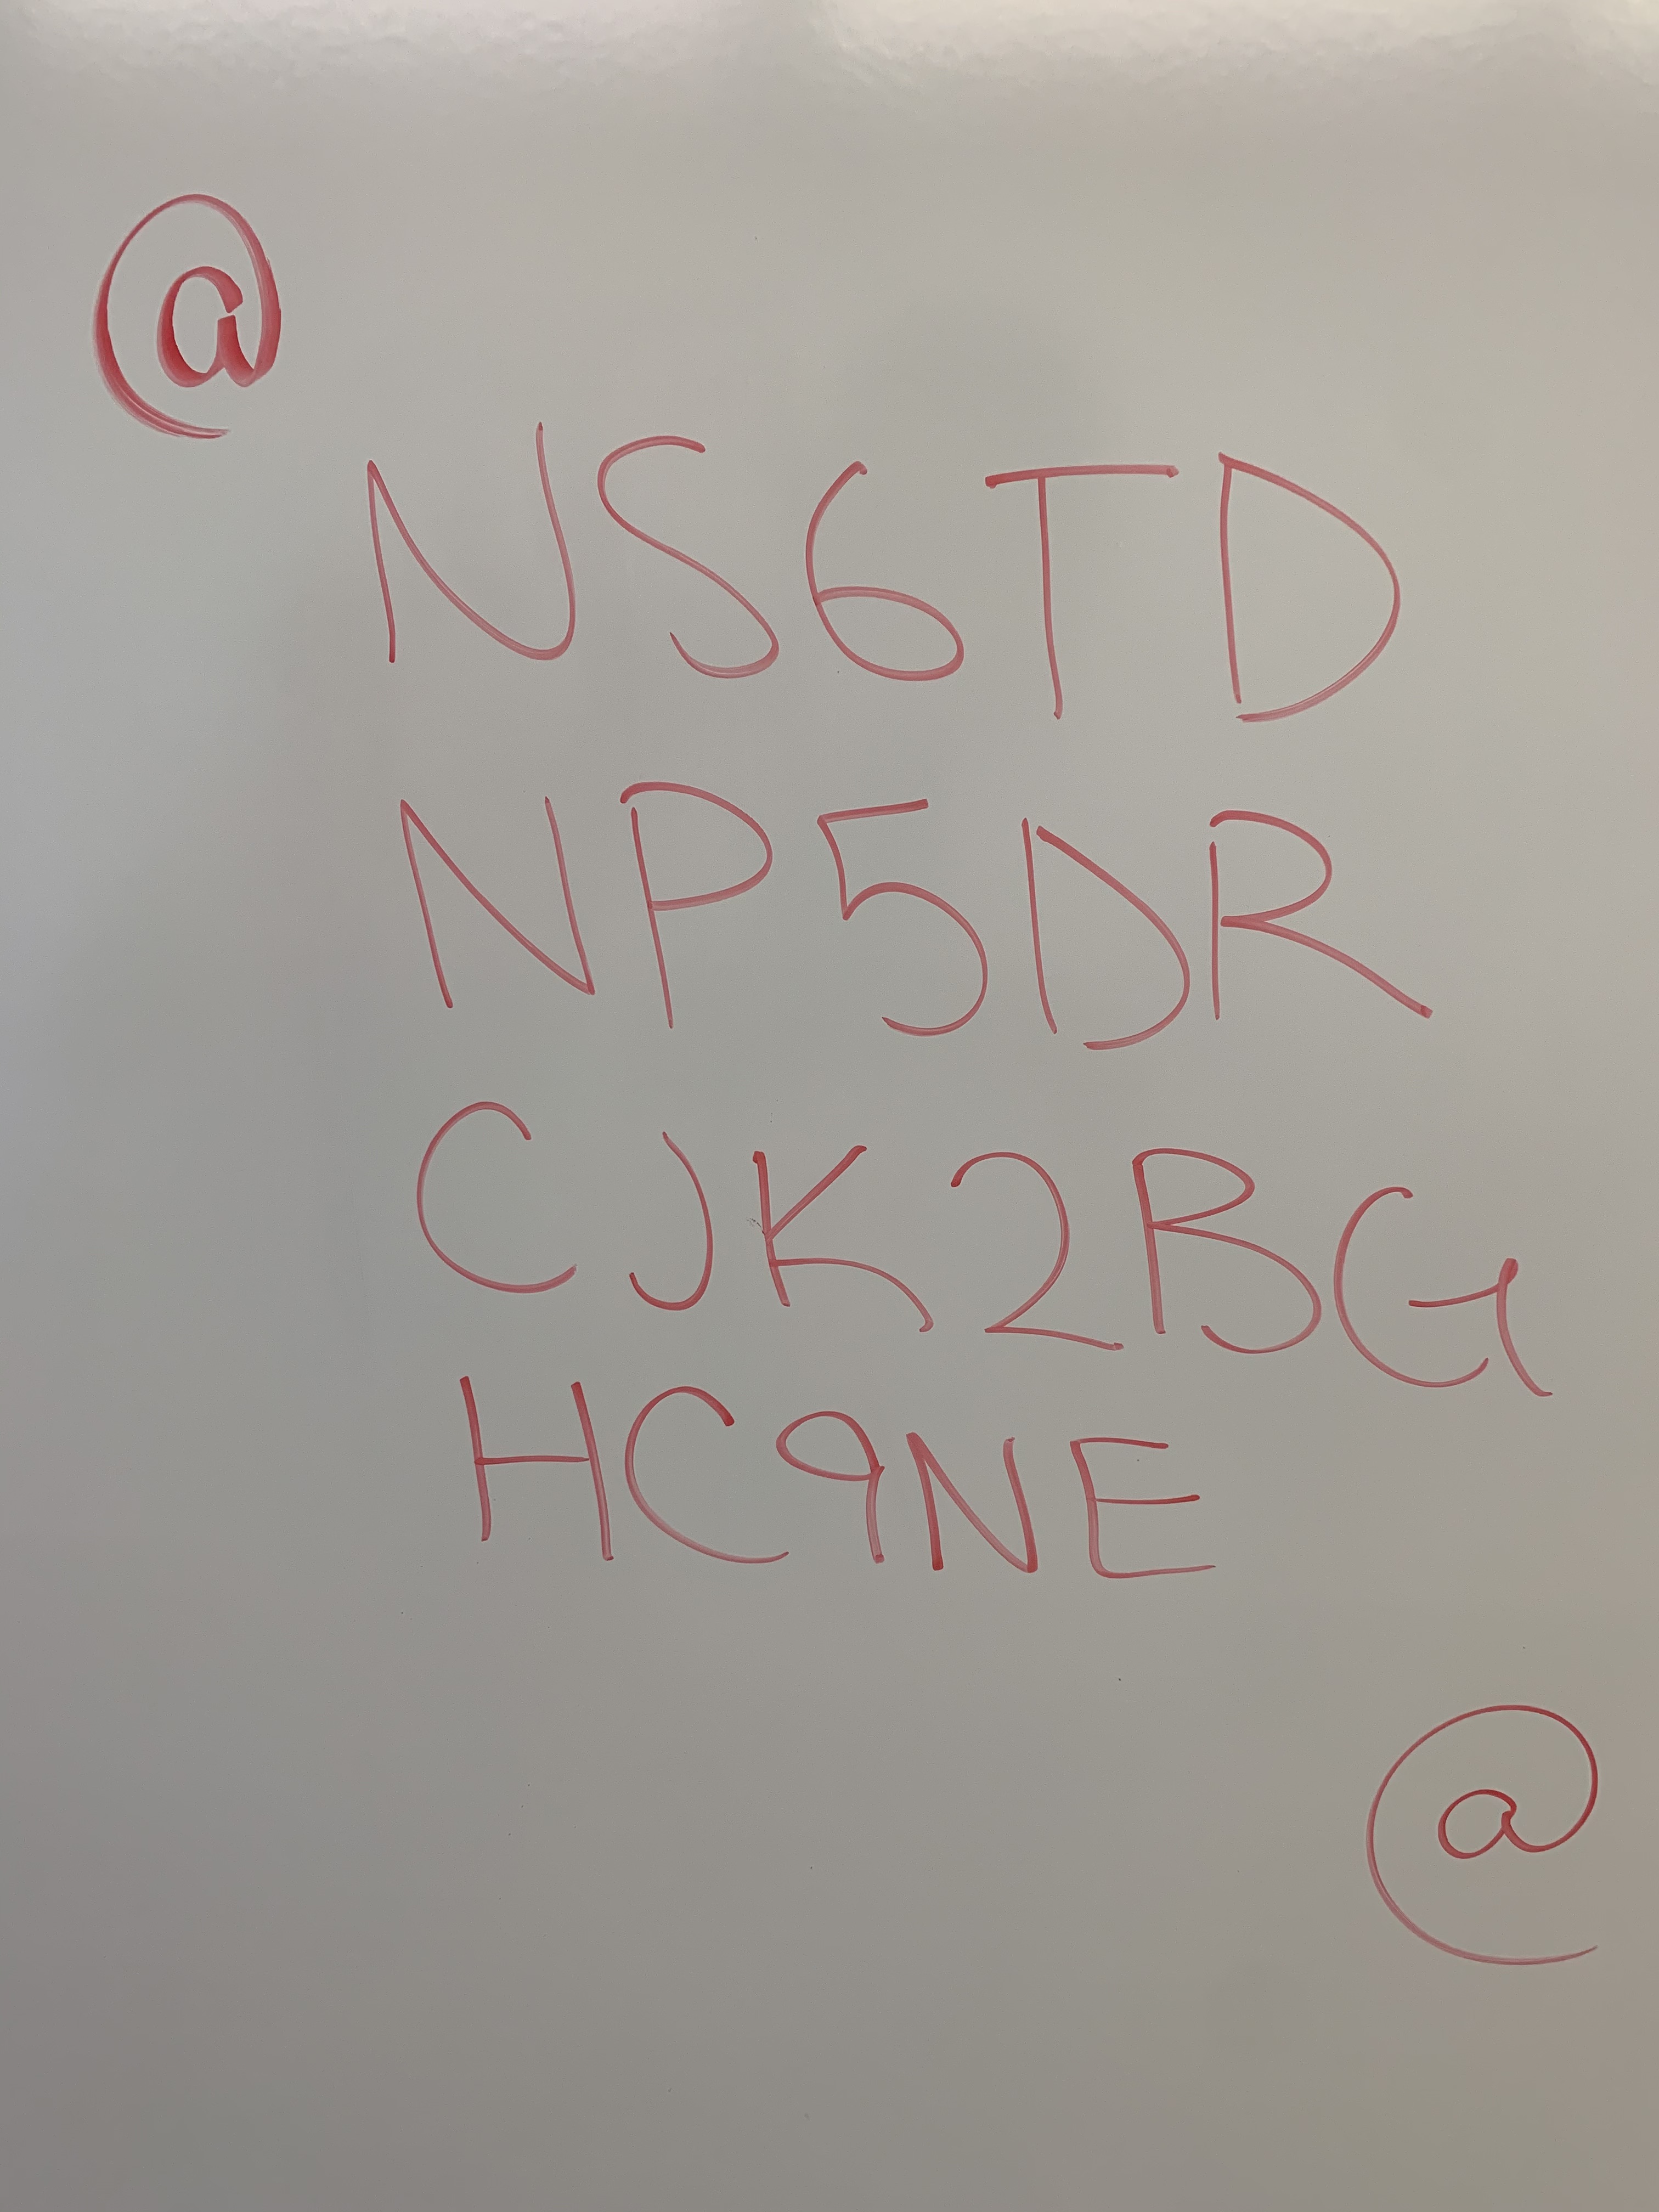 @
NS6TD
NP5DR
CJK2BG
HC9NE
@